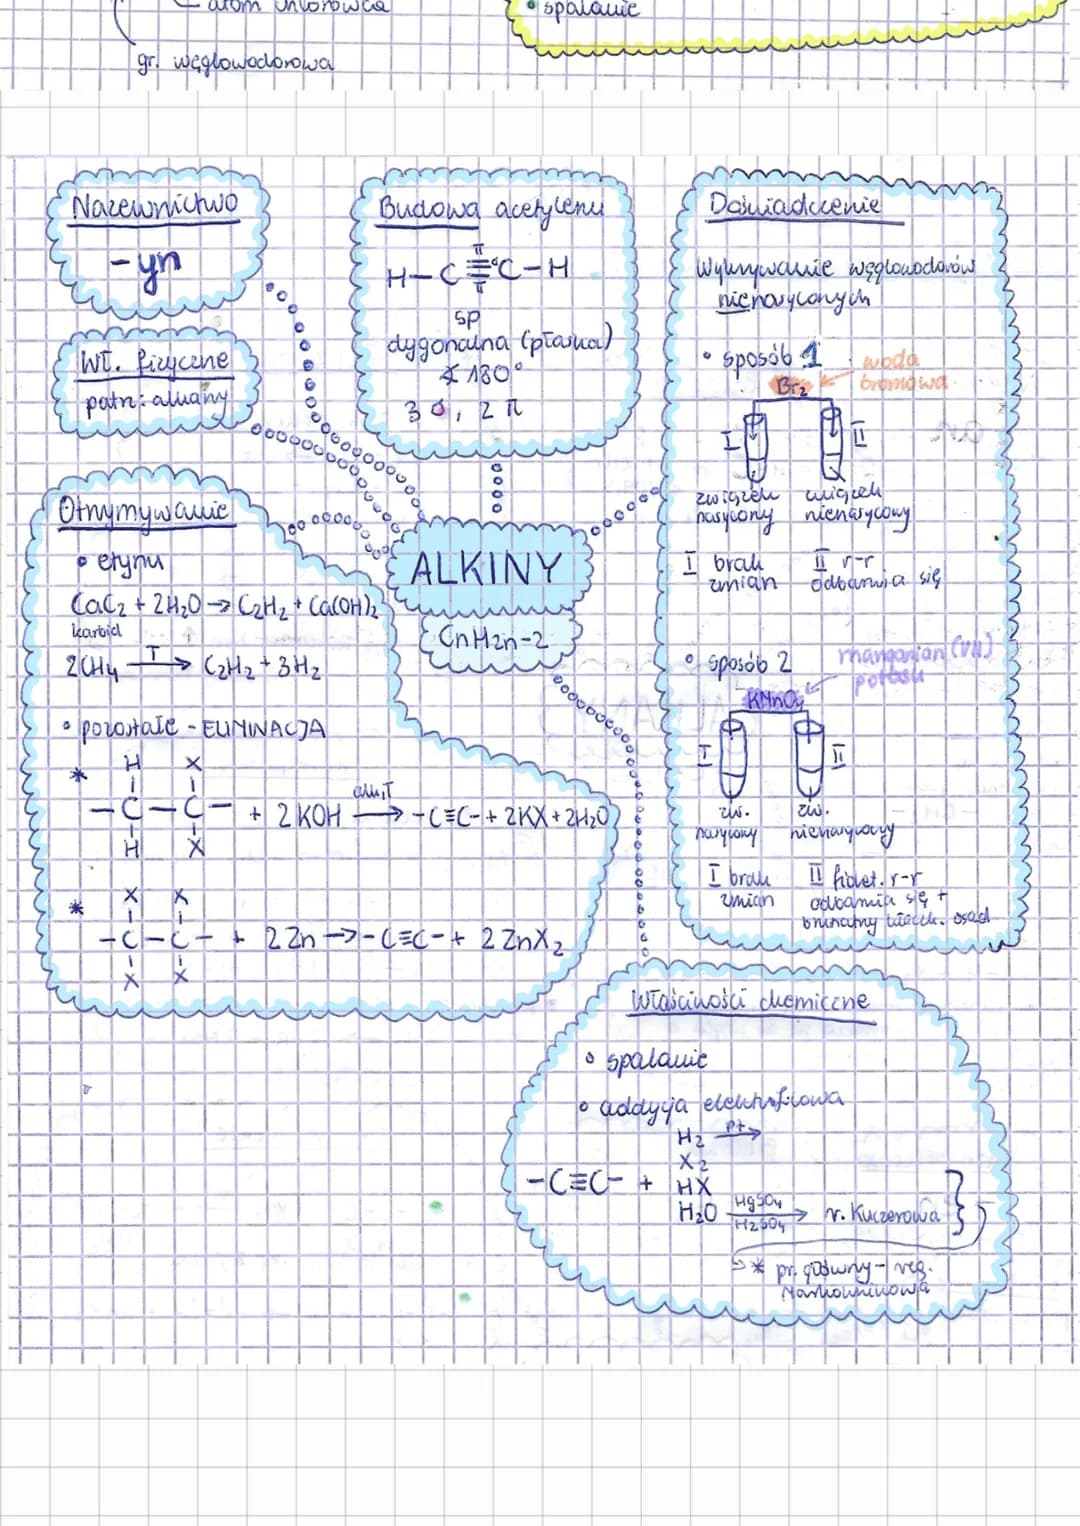 atom chlorowca
gr. węglowodorowa
• spalanie
Nazewnictwo
-yn
Wł. fizyczne
patrz: alkany
Budowa acetylenu
π
H-C≡C-H
σ
π
sp
dygonalna (płaska)
∡ 180°
3 σ, 2 π
Doświadczenie
Wykrywanie węglowodorów
nienasyconych
• sposób 1
woda
bromowa
Br₂
I
II
związek
nasycony
związek
nienasycony
I brak
zmian
II r-r
odbarwia się
• sposób 2
manganian (VII)
potasu
KMnO₄
I
II
zw.
nasycony
zw.
nienasycony
I brak
zmian
II fiolet. r-r
odbarwia się +
brunatny osad
ALKINY
CnH2n-2
Otrzymywanie
• etynu
CaC₂ + 2H₂O → C₂H₂ + Ca(OH)₂
karbid
2CH₄ T→ C₂H₂ + 3H₂
• pozostałe - ELIMINACJA
*
H X
-C-C- + 2KOH alk,T→ -C≡C- + 2KX + 2H₂O
H X
*
X X
-C-C- + 2Zn → -C≡C- + 2ZnX₂
X X
Właściwości chemiczne
• spalanie
• addycja elektrofilowa
H₂ Pt→
X₂
-C≡C- + HX
H₂O HgSO₄→ r. Kuczerowa
H₂SO₄
→ * pr. główny - reg.
Markownikowa